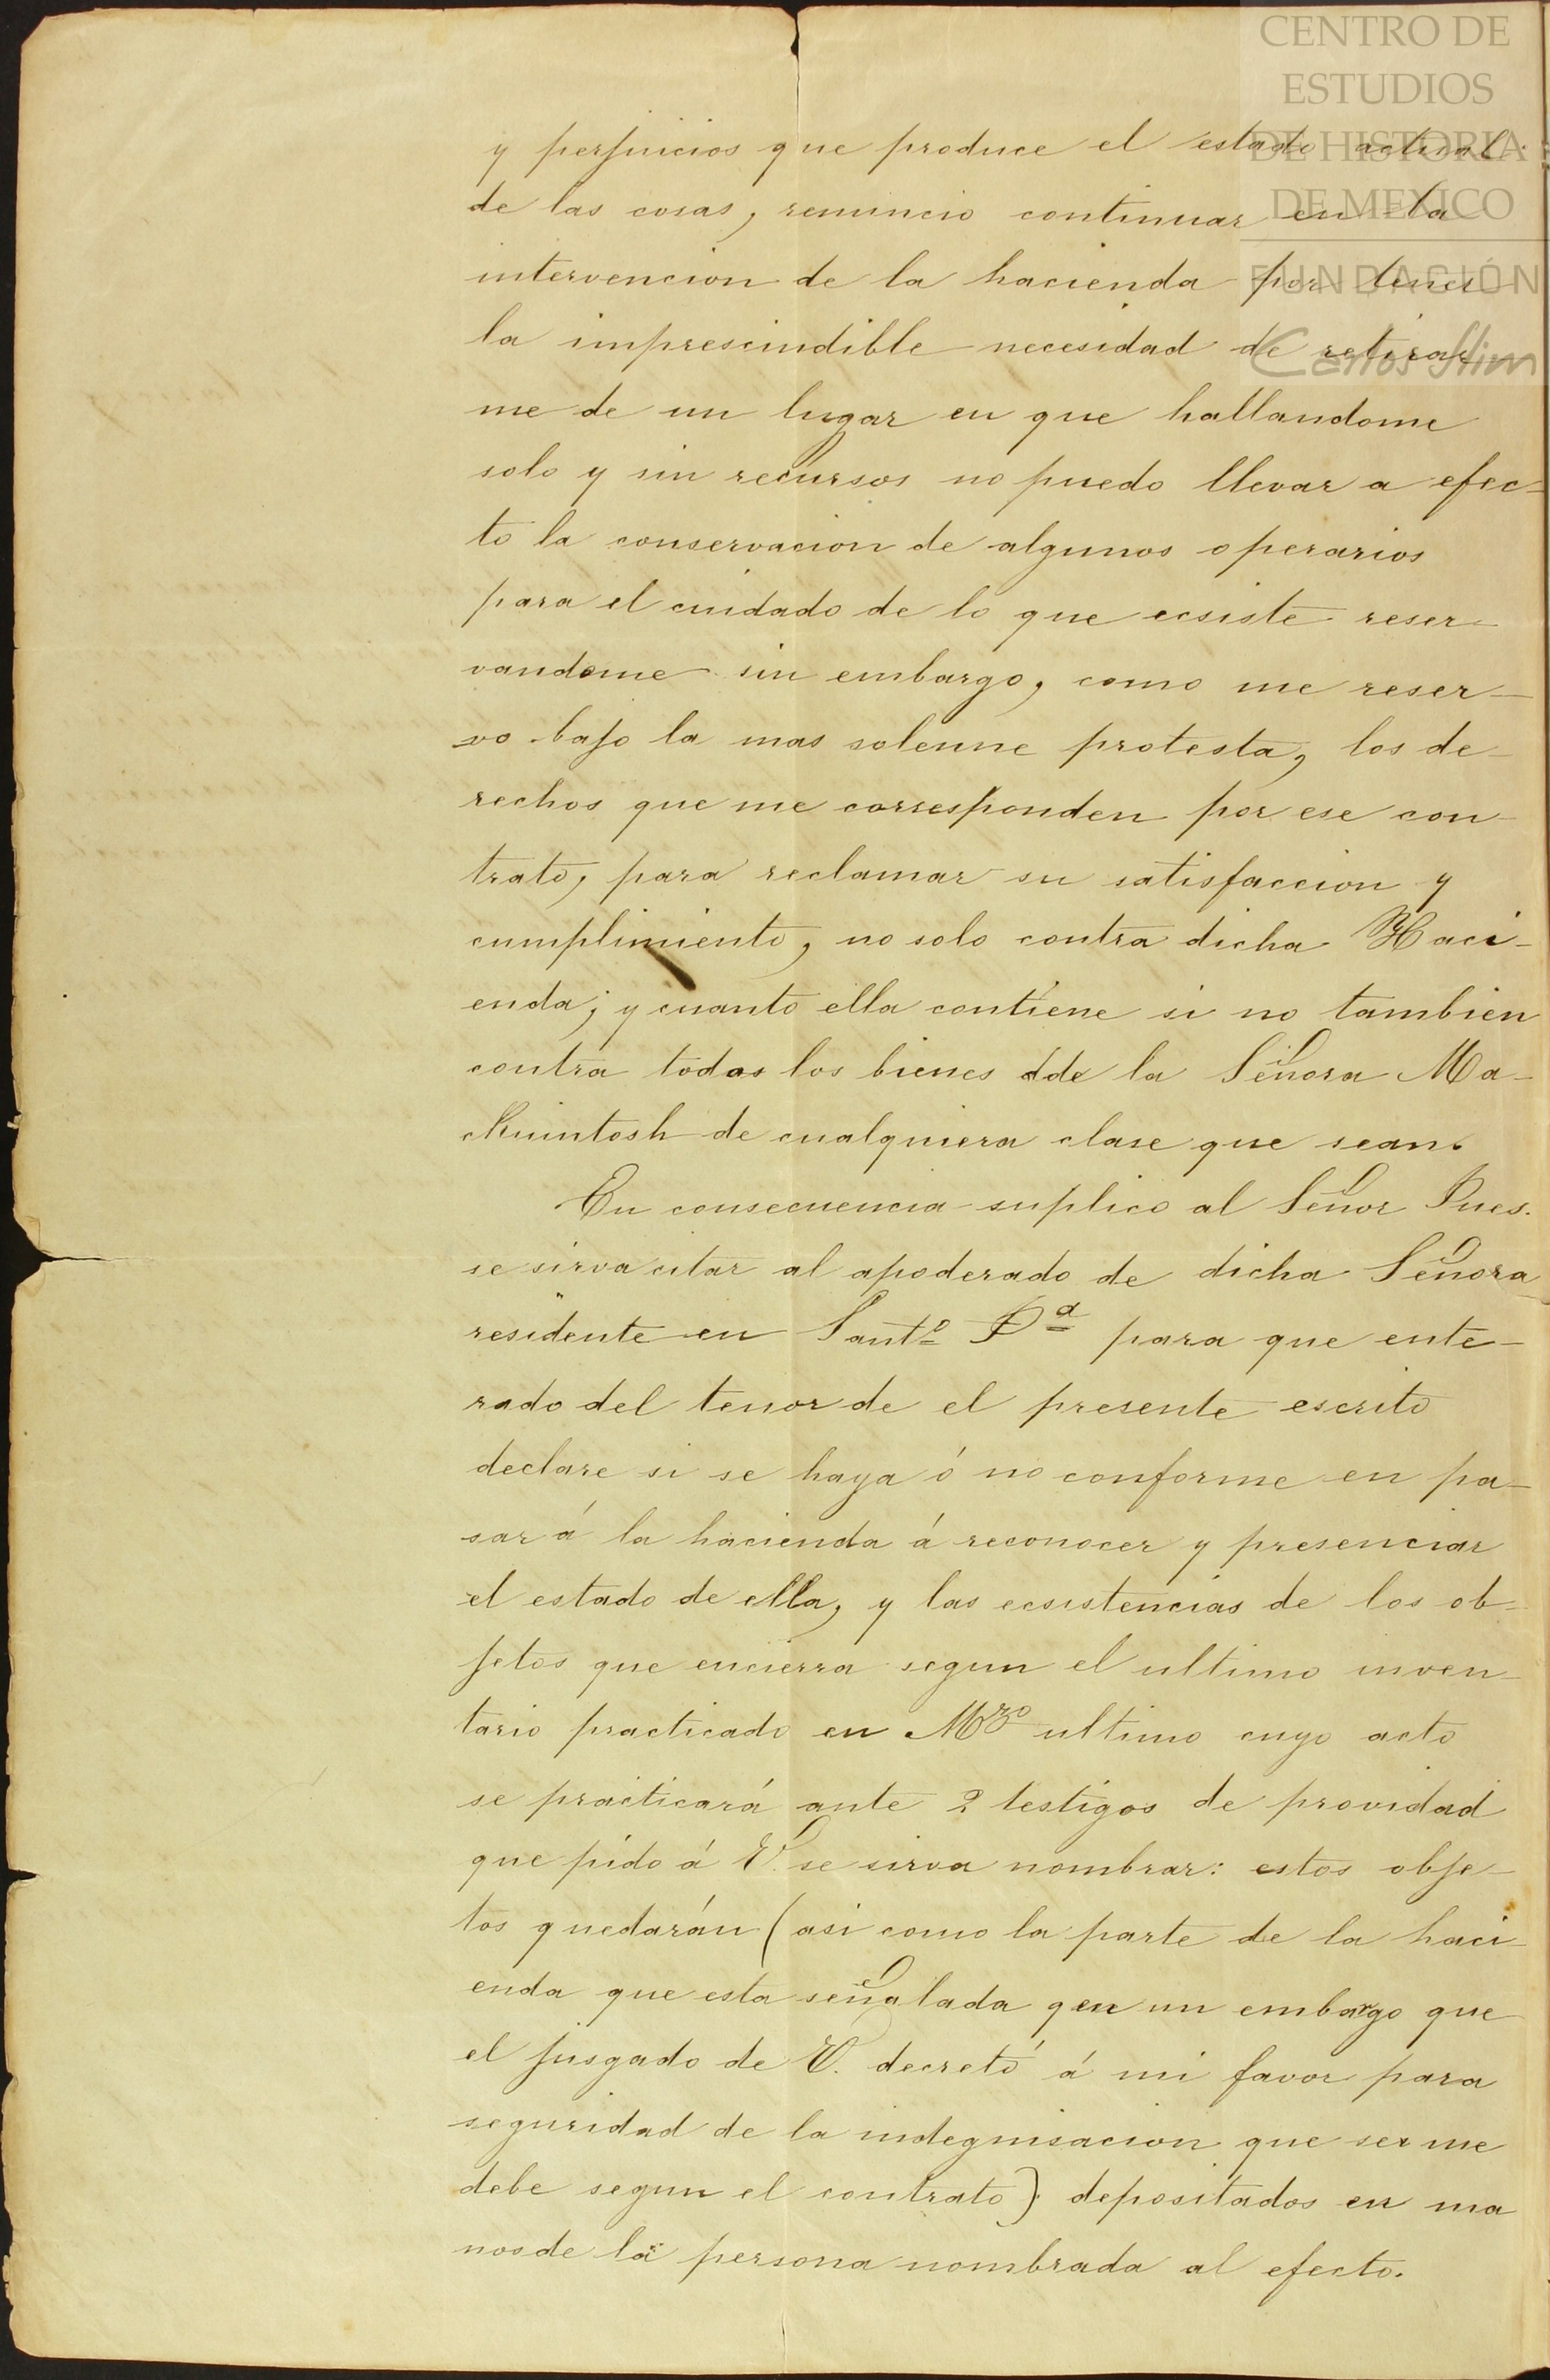 CENTRO DE
ESTUDIOS
DE HISTORIA
DE MEXICO
FUNDACIÓN
Carlos Slim
y perjuicios que produce el estado actual
de las cosas, renuncio continuar en la
intervencion de la hacienda por tener
la imprescindible necesidad de retirar
me de un lugar en que hallandome
solo y sin recursos no puedo llevar a efec-
to la conservacion de algunos operarios
para el cuidado de lo que ecsiste reser-
vandome sin embargo, como me reser-
vo bajo la mas solenne protesta, los de-
rechos que me corresponden por ese con-
trato, para reclamar su satisfaccion y
cumplimiento, no solo contra dicha Haci-
enda; y cuanto ella contiene si no tambien
contra todos los bienes de la Señora Ma-
ckuintosh de cualquiera clase que sean.
En consecuencia suplico al Señor Jues.
se sirva citar al apoderado de dicha Señora
residente en Santo Da para que ente-
rado del tenor de el presente escrito
declare si se haya ó no conforme en pa-
sar á la hacienda á reconocer y presenciar
el estado de ella, y las ecsistencias de los ob-
jetos que encierra segun el ultimo inven-
tario practicado en Mrzo ultimo cuyo acto
se practicará ante 2 testigos de providad
que pido á V. se sirva nombrar: estos obje-
tos quedarán (asi como la parte de la haci-
enda que esta señalada en un embargo que
el jusgado de V. decretó á mi favor para
seguridad de la indegnisacion que se me
debe segun el contrato) depositados en ma
nos de la persona nombrada al efecto.